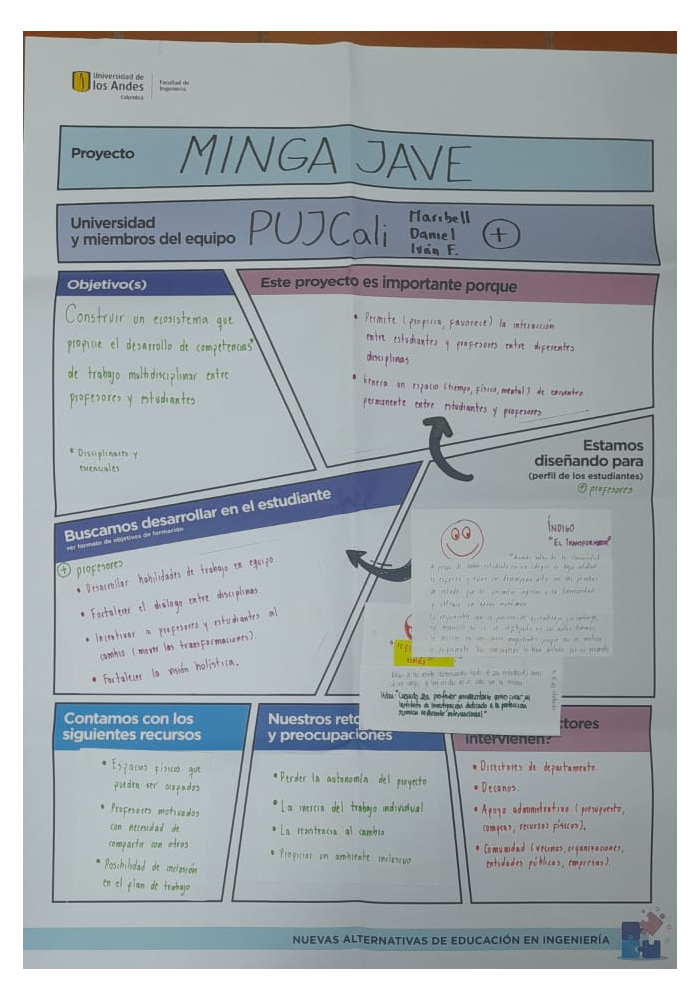 Universidad de
los Andes
Colombia
Facultad de
Ingeniería
Proyecto
MINGA JAVE
Universidad
y miembros del equipo
PUJCali
Maribell
Daniel
Iván F.
+
Objetivo(s)
Construir un ecosistema que
propicie el desarrollo de competencias*
de trabajo multidisciplinar entre
profesores y estudiantes
* Disciplinares y
esenciales
Este proyecto es importante porque
• Permite (propicia, favorece) la interacción
entre estudiantes y profesores entre diferentes
disciplinas
• Genera un espacio (tiempo, físico, mental) de encuentro
permanente entre estudiantes y profesores
Estamos
diseñando para
(perfil de los estudiantes)
+ profesores
ÍNDIGO
"EL TRANSFORMADOR"
Buscamos desarrollar en el estudiante
ver formato de objetivos de formación
+ profesores
• Desarrollar habilidades de trabajo en equipo.
• Fortalecer el diálogo entre disciplinas.
• Incentivar a profesores y estudiantes al
cambio (mover las transformaciones).
• Fortalecer la visión holística.
Contamos con los
siguientes recursos
• Espacios físicos que
pueden ser ocupados
• Profesores motivados
con necesidad de
compartir con otros
• Posibilidad de inclusión
en el plan de trabajo
Nuestros reto
y preocupaciones
• Perder la autonomía del proyecto
• La inercia del trabajo individual
• La resistencia al cambio
• Propiciar un ambiente inclusivo
ctores
intervienen?
• Directores de departamento.
• Decanos.
• Apoyo administrativo (presupuesto,
compras, recursos físicos).
• Comunidad (vecinos, organizaciones,
entidades públicas, empresas).
NUEVAS ALTERNATIVAS DE EDUCACIÓN EN INGENIERÍA